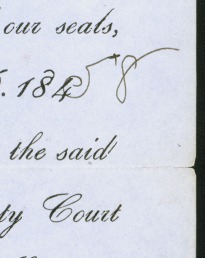 our seals,
. 18458
the said
ty Court